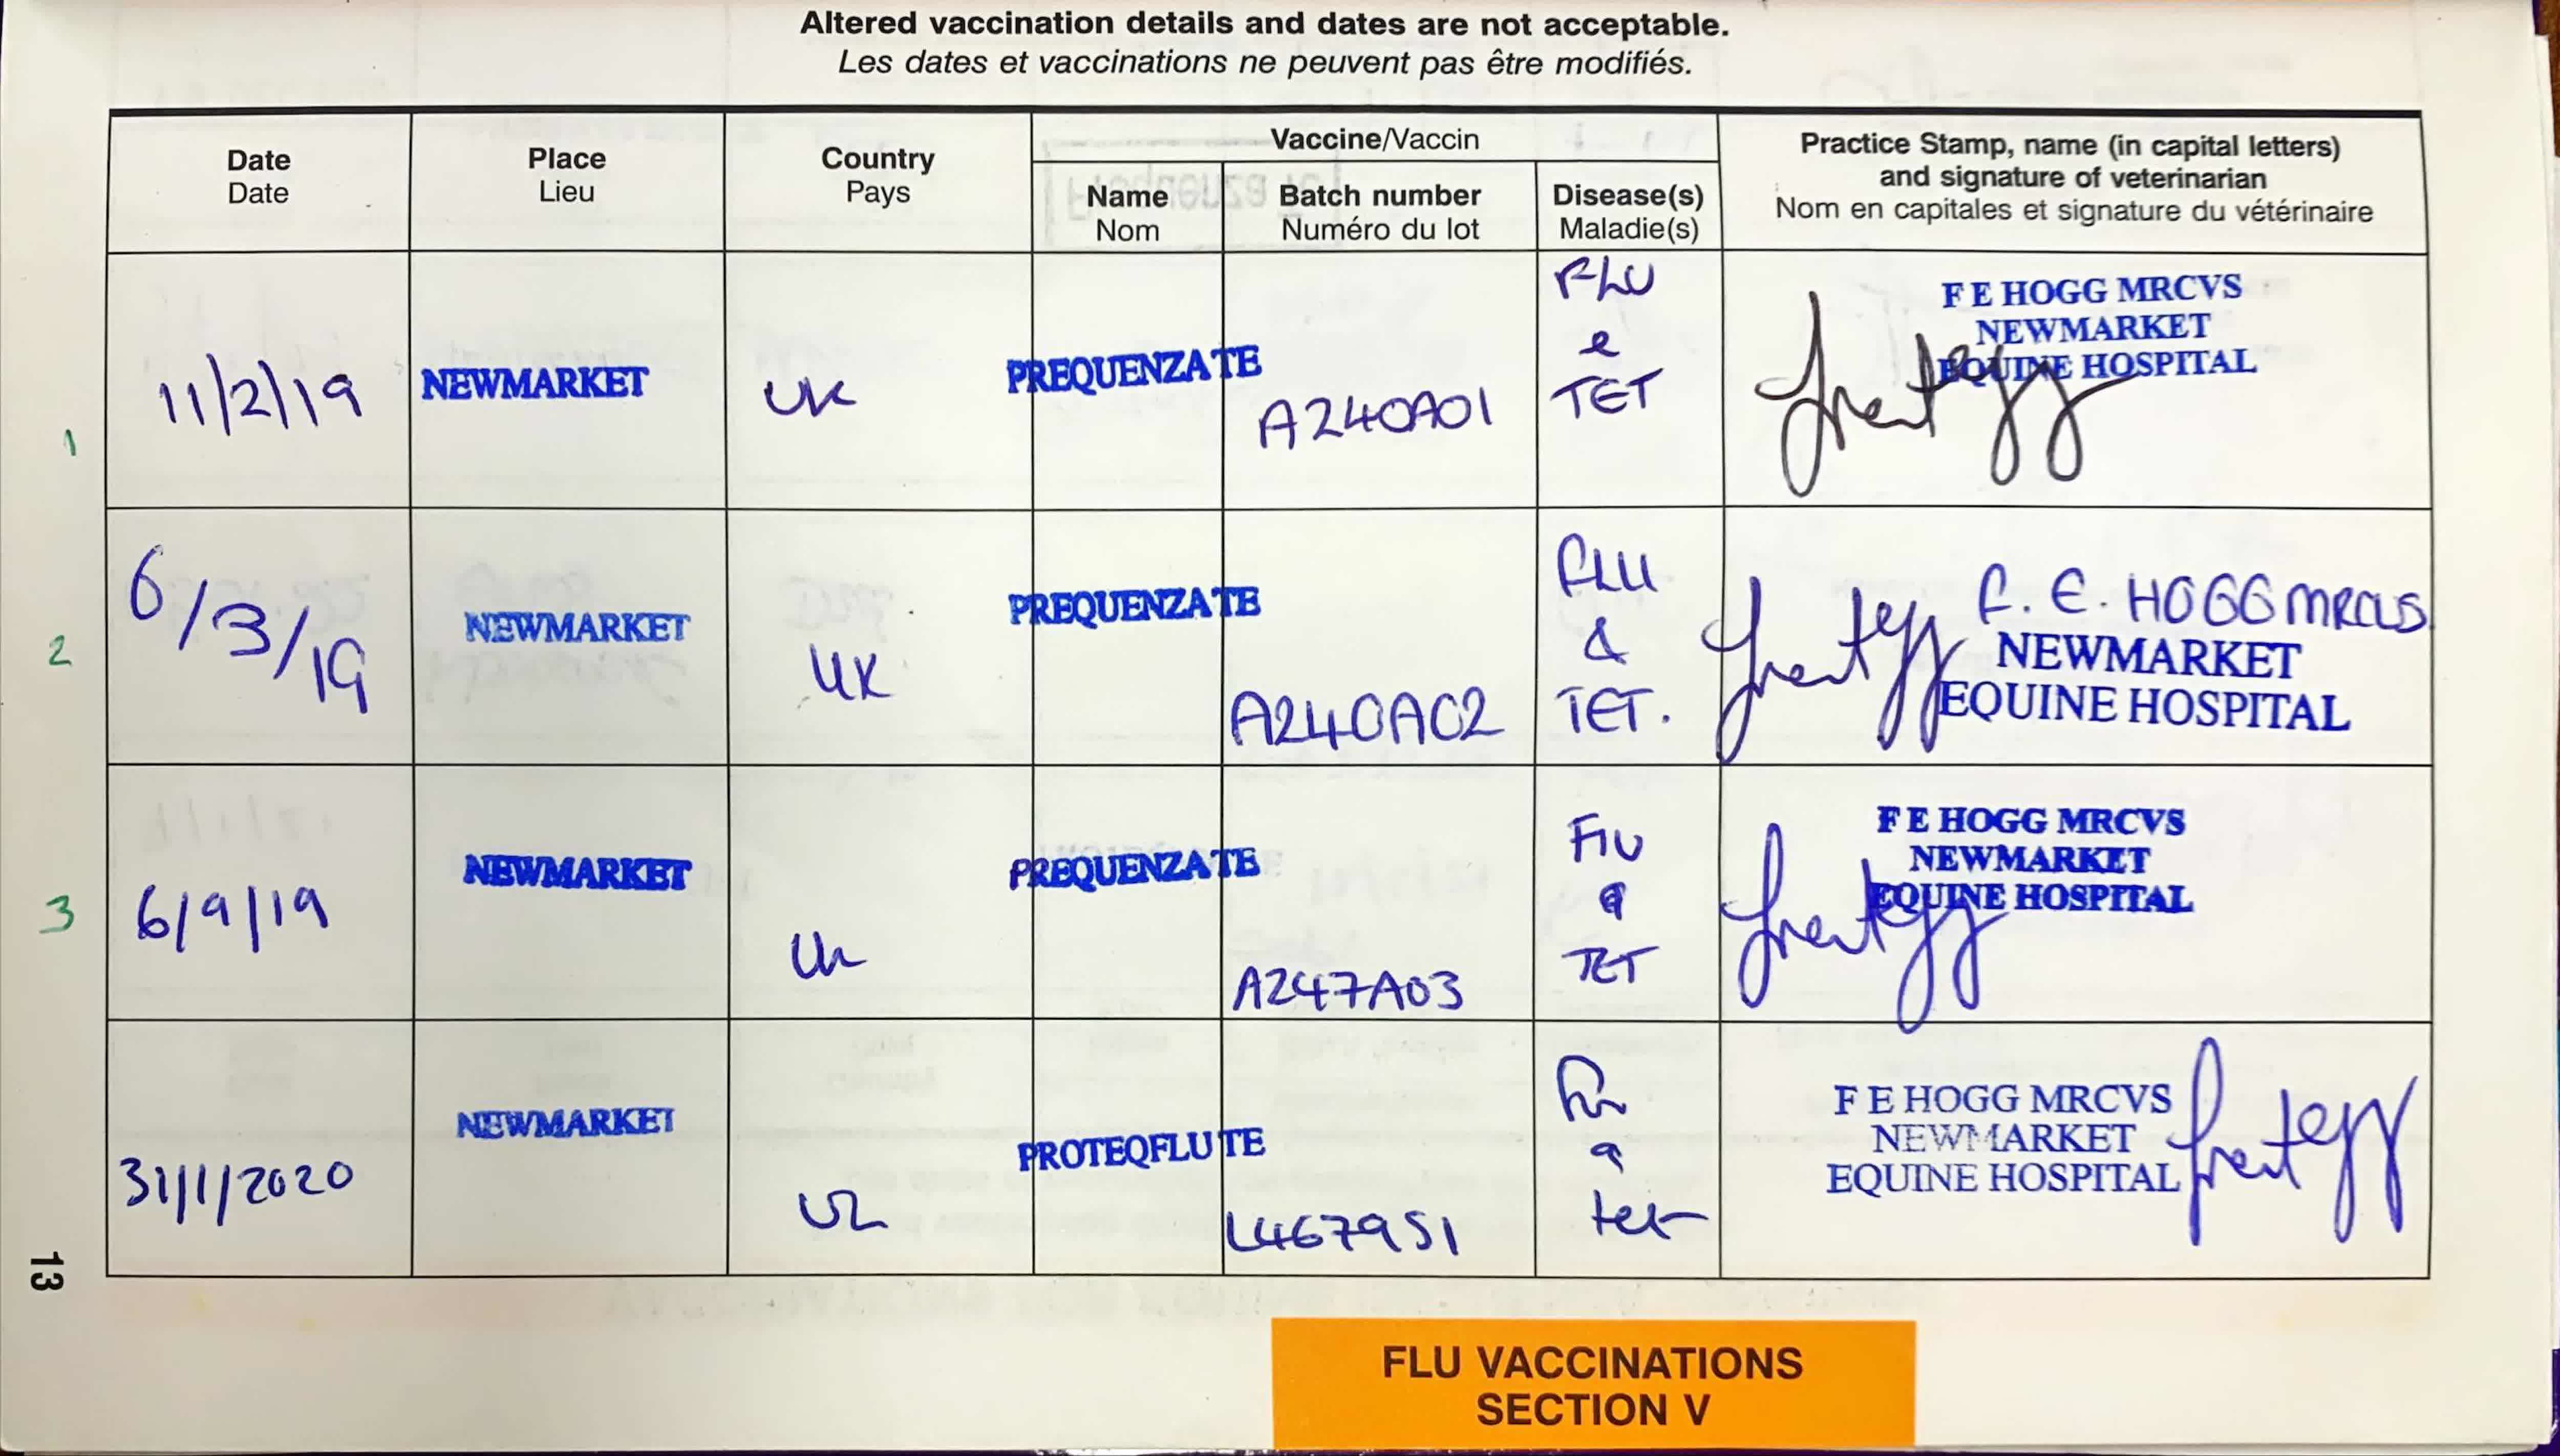 Altered vaccination details and dates are not acceptable.
Les dates et vaccinations ne peuvent pas être modifiés.
Date
Date
Place
Lieu
Country
Pays
Vaccine/Vaccin
Name
Nom
Batch number
Numéro du lot
Disease(s)
Maladie(s)
Practice Stamp, name (in capital letters)
and signature of veterinarian
Nom en capitales et signature du vétérinaire
1
11/2/19
NEWMARKET
UK
PREQUENZA TE
A240A01
FLU
e
TET
F E HOGG MRCVS
NEWMARKET
EQUINE HOSPITAL
2
6/3/19
NEWMARKET
UK
PREQUENZA TE
A240A02
FLU
&
TET.
F. E. HOGG MRCVS
NEWMARKET
EQUINE HOSPITAL
3
6/9/19
NEWMARKET
UK
PREQUENZA TE
A247A03
Flu
TET
F E HOGG MRCVS
NEWMARKET
EQUINE HOSPITAL
31/1/2020
NEWMARKET
UK
PROTEQFLU TE
L467951
Flu
tet
F E HOGG MRCVS
NEWMARKET
EQUINE HOSPITAL
13
FLU VACCINATIONS
SECTION V